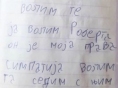 волим те
ја волим Роберта
он је моја прва
симпатија волим
да седим с њим